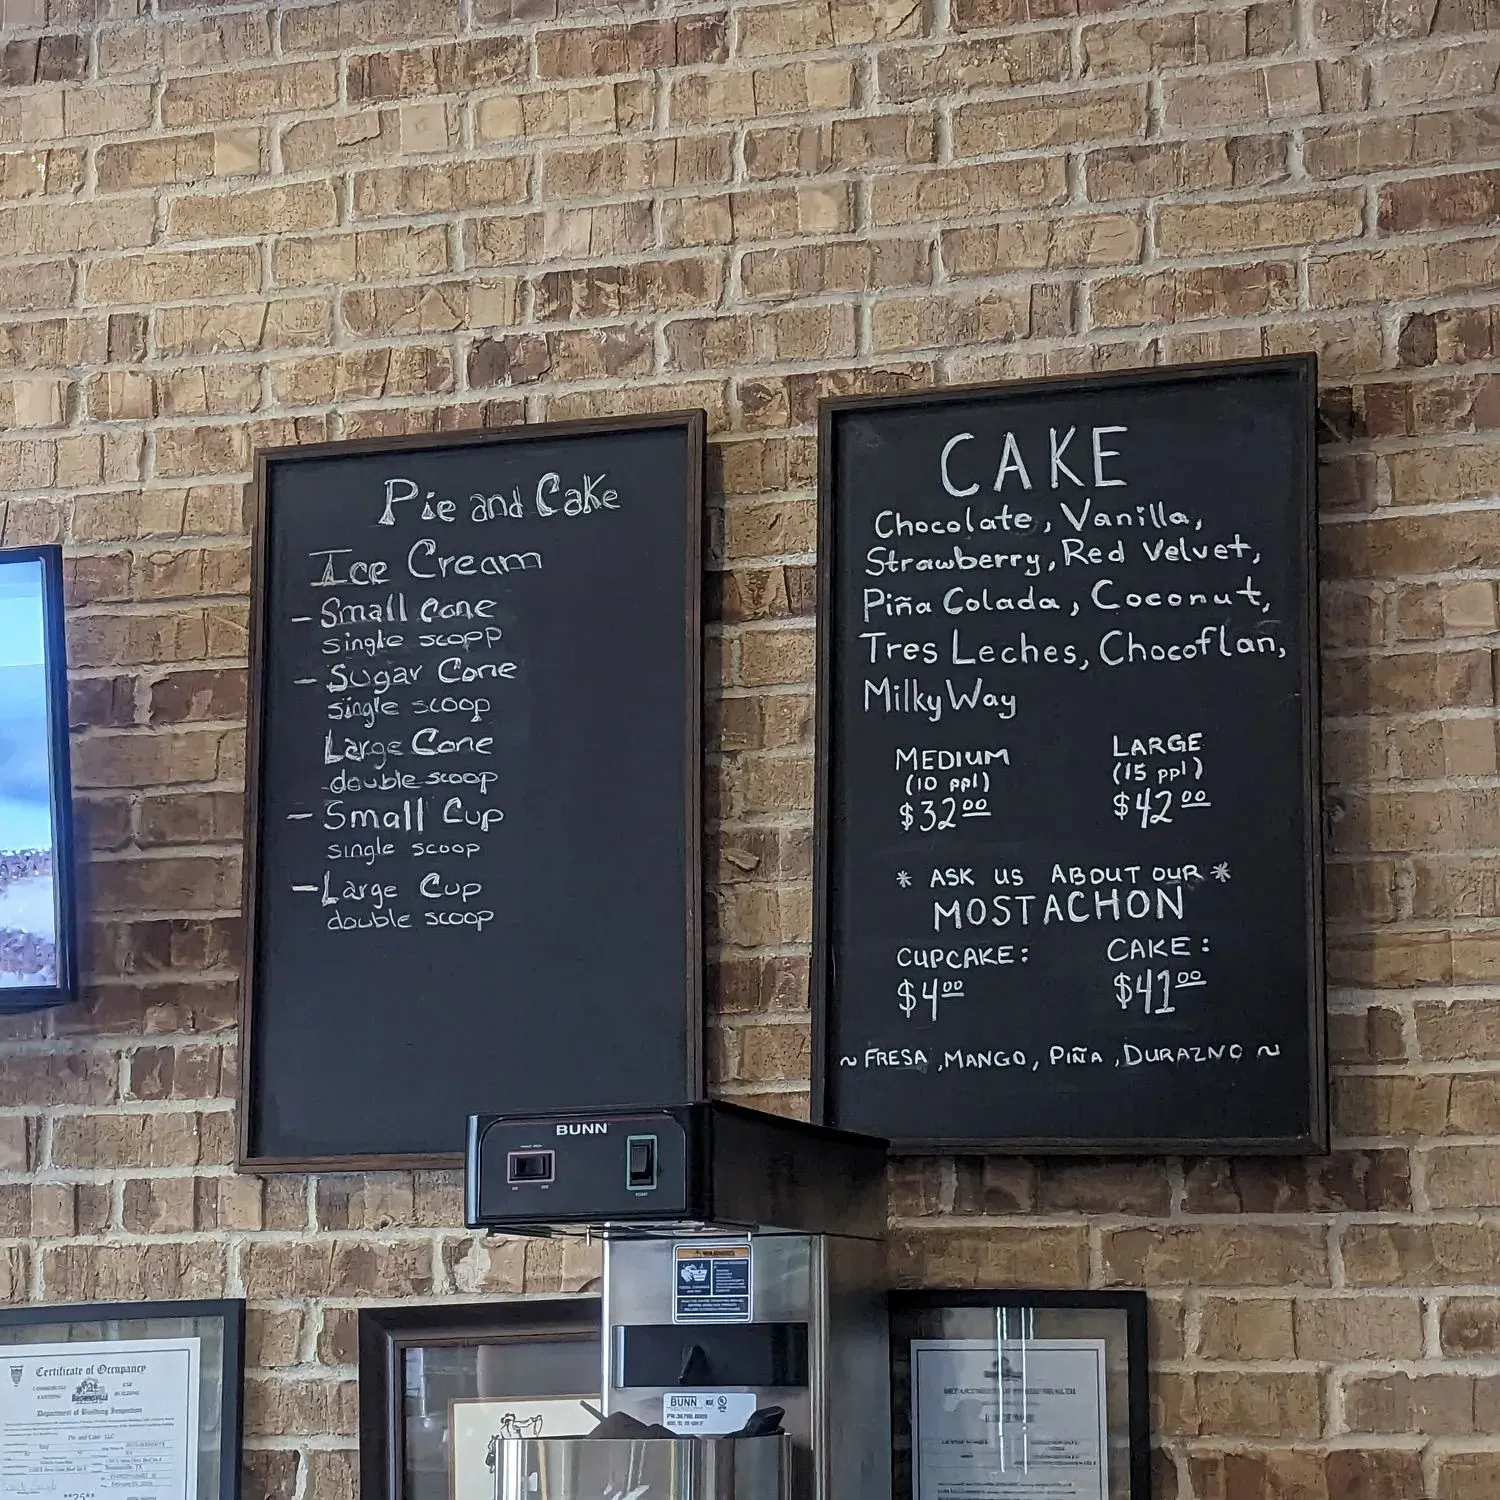 Pie and Cake
Ice Cream
– Small Cone
single scopp
– Sugar Cone
single scoop
Large Cone
double scoop
– Small Cup
single scoop
– Large Cup
double scoop
CAKE
Chocolate, Vanilla,
Strawberry, Red Velvet,
Piña Colada, Coconut,
Tres Leches, Chocoflan,
Milky Way
MEDIUM
(10 ppl)
$32.00
LARGE
(15 ppl)
$42.00
* ASK US ABOUT OUR *
MOSTACHON
CUPCAKE:
$4.00
CAKE:
$41.00
~ FRESA, MANGO, PIÑA, DURAZNO ~
BUNN
WARNING
BUNN
Certificate of Occupancy
BROWNSVILLE
Department of Building Inspection
Pie and Cake LLC